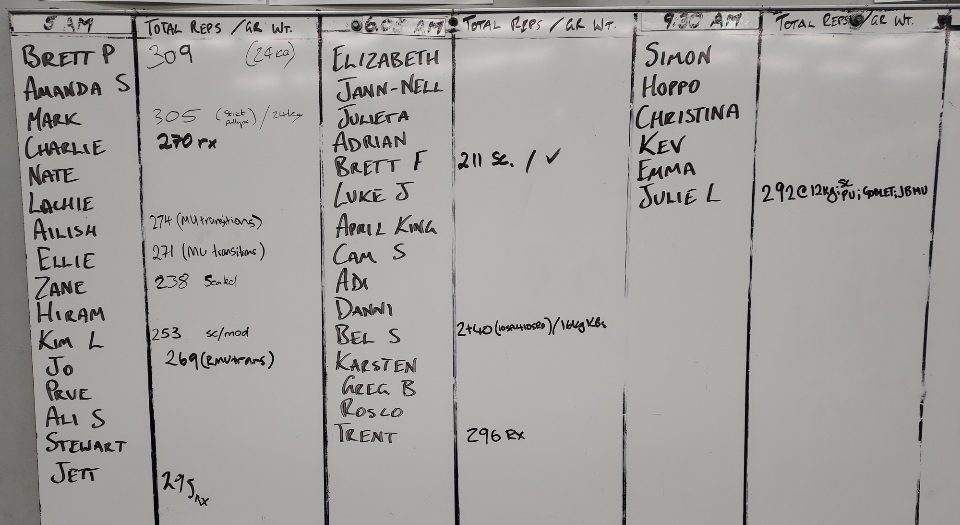 5 AM TOTAL REPS / GR WT. 06:00 AM TOTAL REPS / GR WT. 9:30 AM TOTAL REPS / GR WT.
BRETT P 309 (24KG) ELIZABETH SIMON
AMANDA S JANN-NELL HOPPO
MARK 305 (Strict pullups) / 24kg JULIETA CHRISTINA
CHARLIE 270 rx ADRIAN KEV
NATE BRETT F 211 SC. / ✓ EMMA
LACHIE LUKE J JULIE L 292 @ 12kg; SC PU; GOBLET; JBMU
AILISH 274 (MU transitions) APRIL KING
ELLIE 271 (MU transitions) CAM S
ZANE 238 Scaled ADI
HIRAM DANNI
KIM L 253 sc/mod BEL S 2+40 / 16kg KBs
JO 269 (RMU trans) KARSTEN
PRUE GREG B
ALI S ROSCO
STEWART TRENT 296 RX
JETT 295 RX